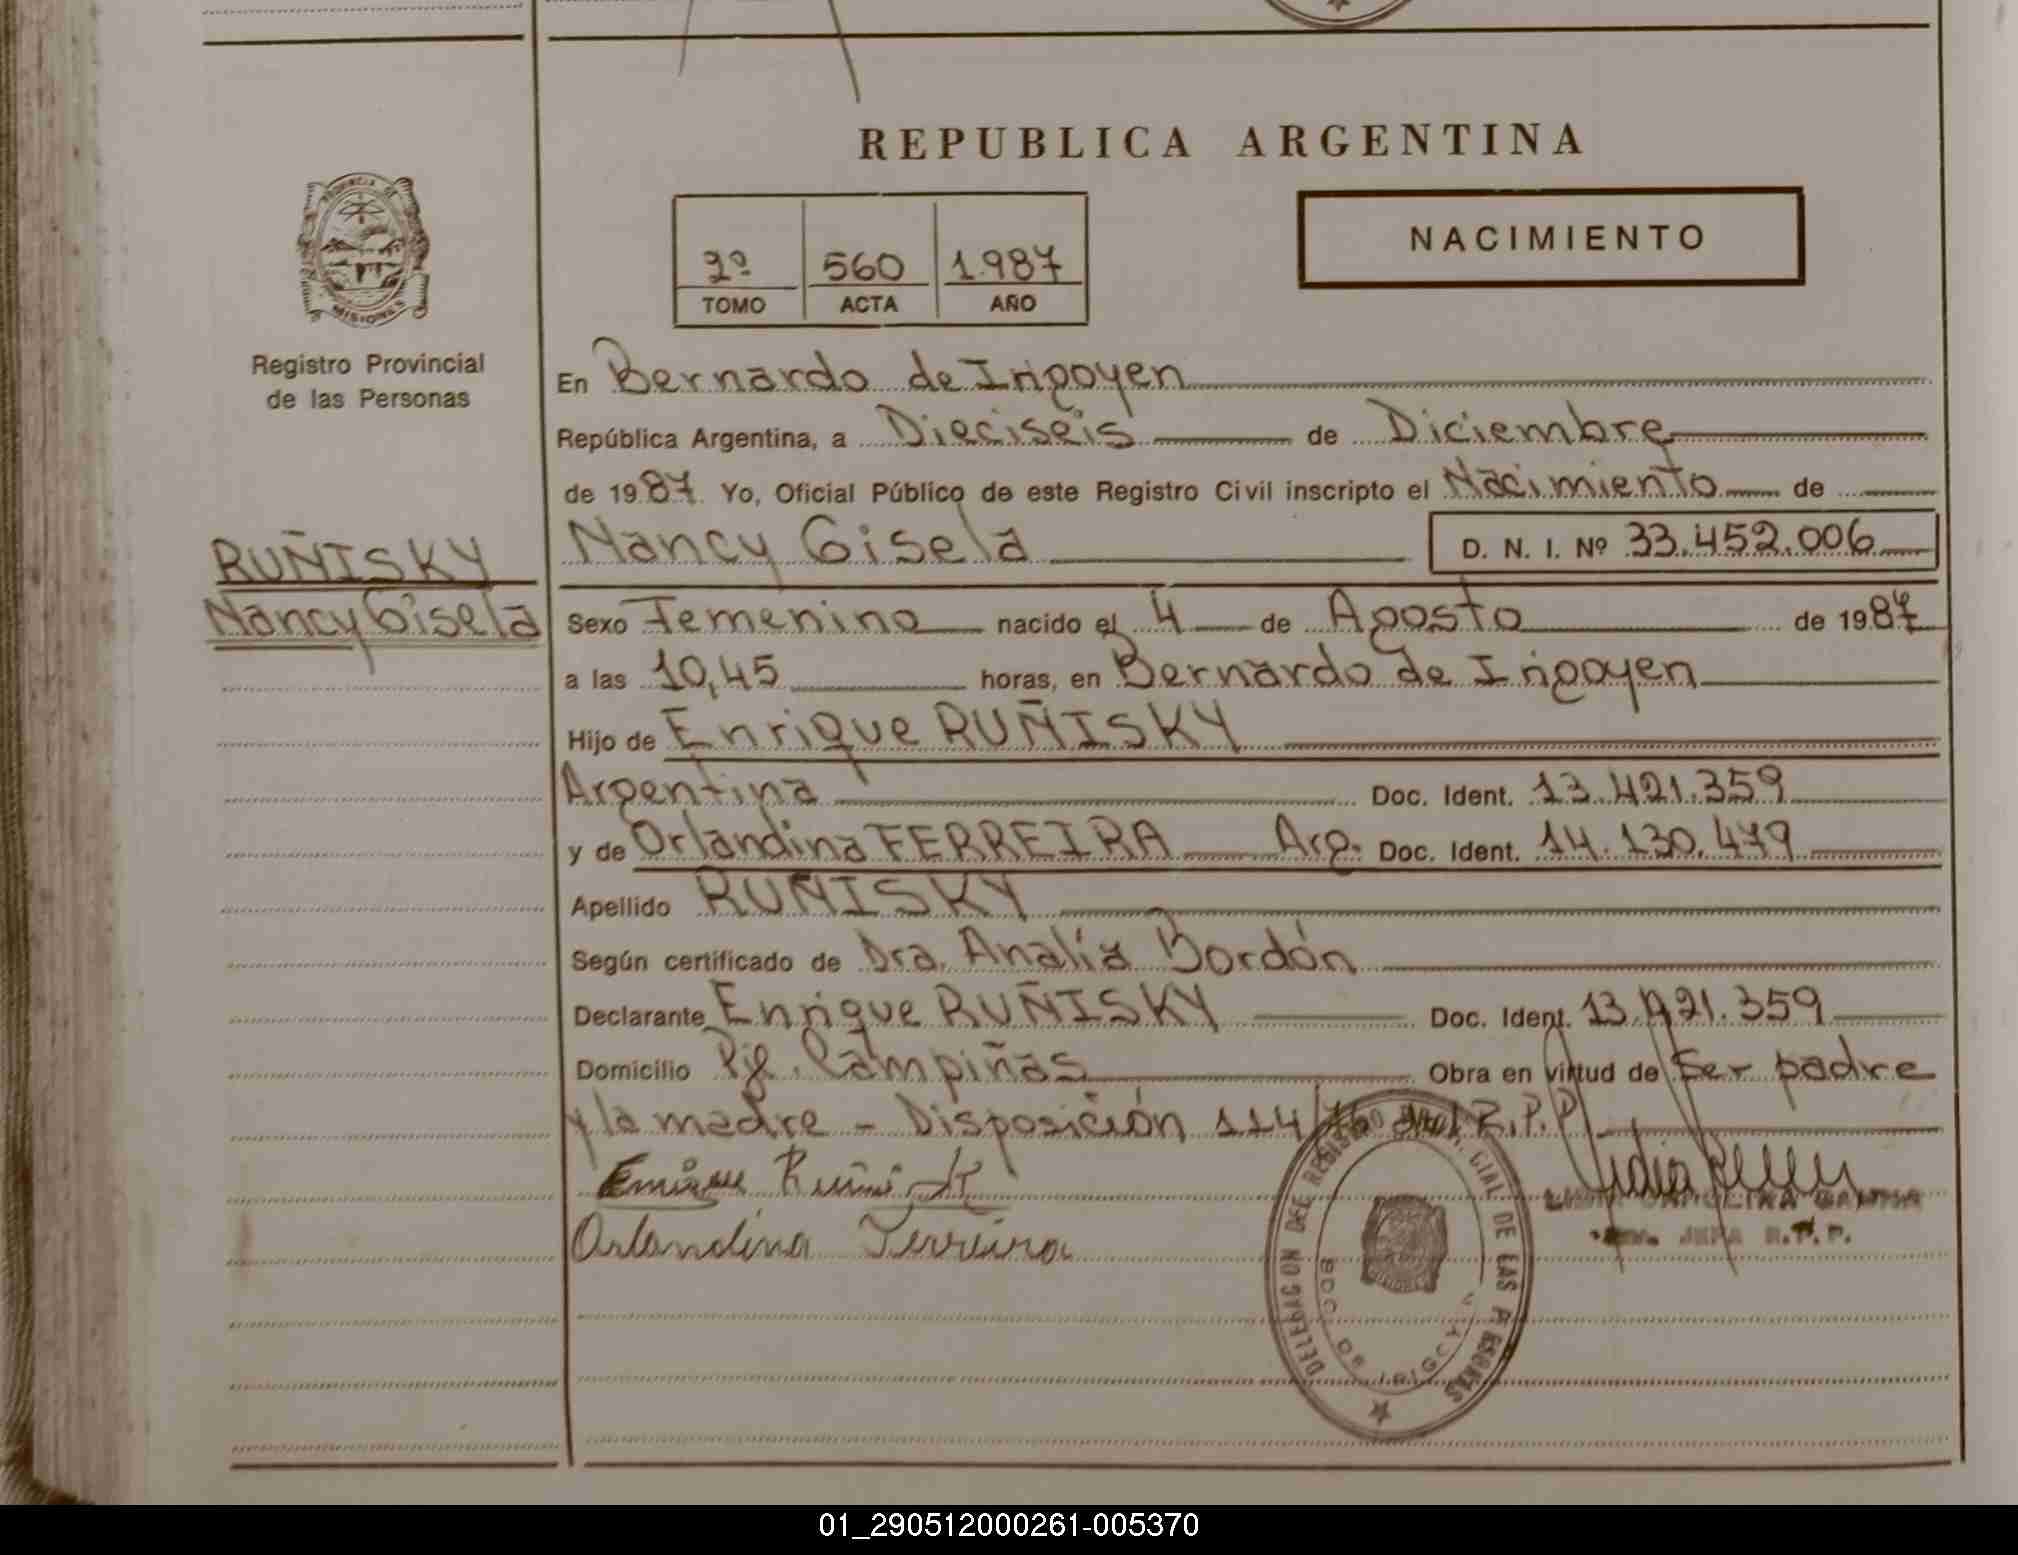 REPUBLICA ARGENTINA
PROVINCIA DE MISIONES
2º 560 1.987
TOMO ACTA AÑO
NACIMIENTO
Registro Provincial
de las Personas
En Bernardo de Irigoyen
República Argentina, a Dieciseis de Diciembre
de 1987. Yo, Oficial Público de este Registro Civil inscripto el Nacimiento de
RUÑISKY
Nancy Gisela
Nancy Gisela D. N. I. Nº 33.452.006
Sexo Femenino nacido el 4 de Agosto de 1987
a las 10,45 horas, en Bernardo de Irigoyen
Hijo de Enrique RUÑISKY
Argentina Doc. Ident. 13.421.359
y de Orlandina FERREIRA Arg. Doc. Ident. 14.130.479
Apellido RUÑISKY
Según certificado de Dra. Analía Bordón
Declarante Enrique RUÑISKY Doc. Ident. 13.421.359
Domicilio Pje. Campiñas Obra en virtud de Ser padre
y la madre - Disposición 114/76 del R.P.P.
Orlandina Ferreira
DELEGACION DEL REGISTRO PROVINCIAL DE LAS PERSONAS
JEFA R.P.P.
01_290512000261-005370